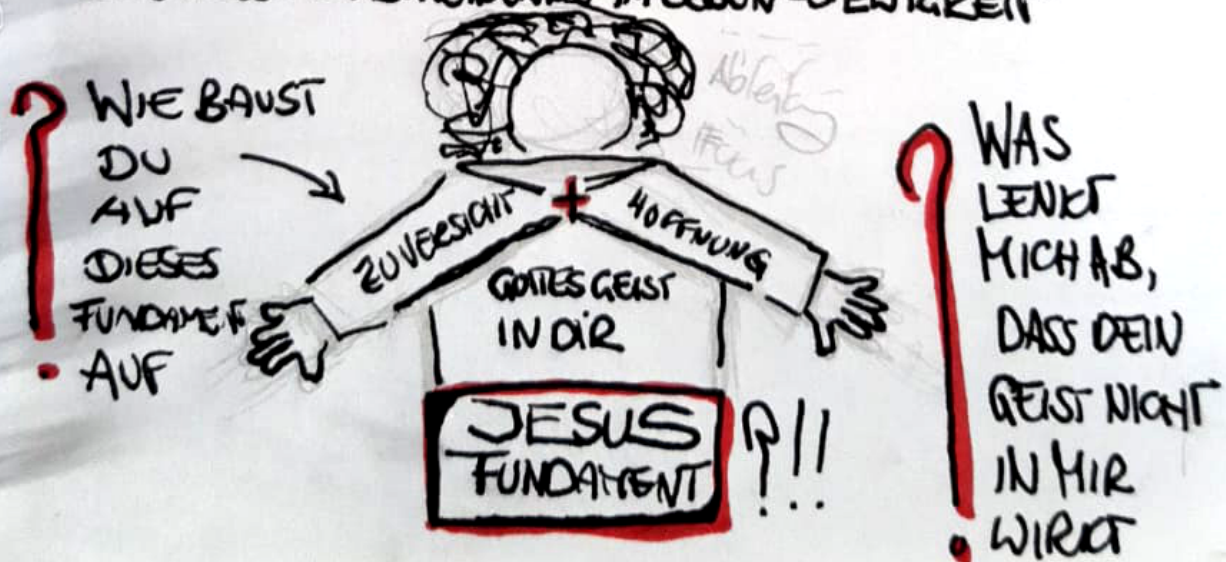 EWIGKEIT
WIE BAUST
DU
AUF
DIESES
FUNDAMENT
AUF
ZUVERSICHT
HOFFNUNG
GOTTES GEIST
IN DIR
JESUS
FUNDAMENT
?!!
WAS
LENKT
MICH AB,
DASS DEIN
GEIST NICHT
IN MIR
WIRKT